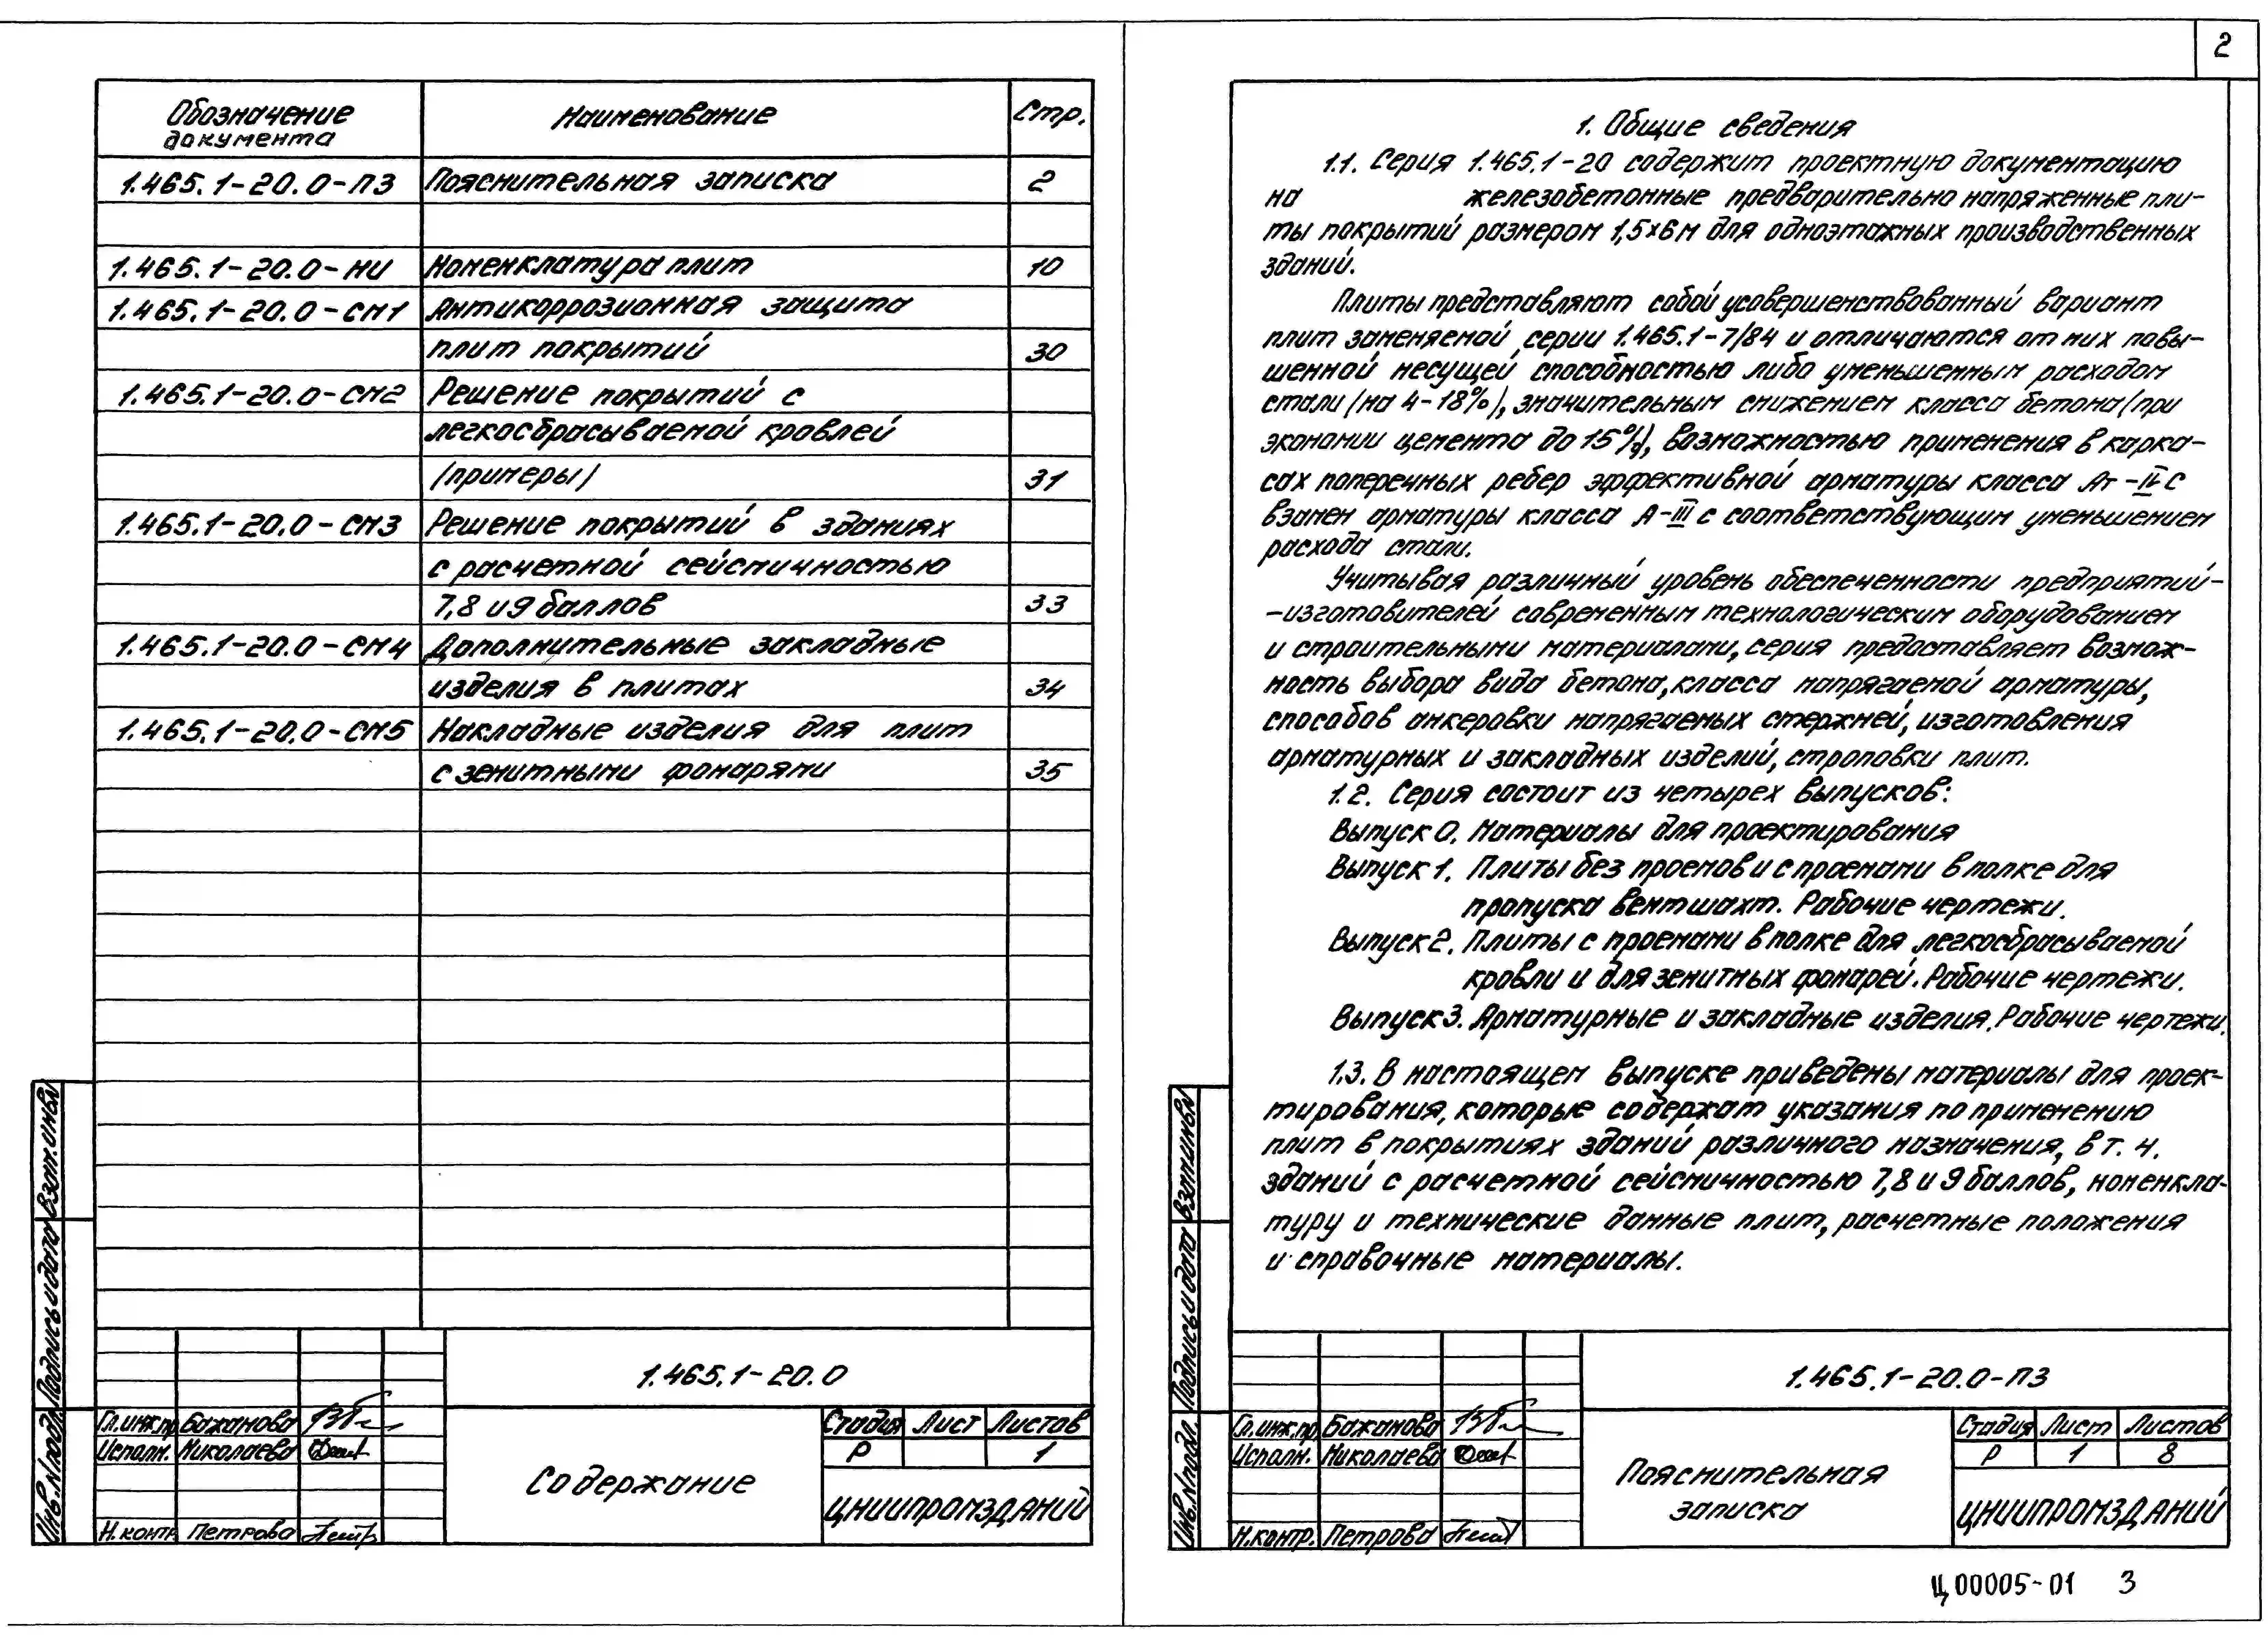 Обозначение документа Наименование Стр.
1.465.1-20.0-ПЗ Пояснительная записка 2
1.465.1-20.0-НИ Номенклатура плит 10
1.465.1-20.0-СМ1 Антикоррозионная защита
плит покрытий 30
1.465.1-20.0-СМ2 Решение покрытий с
легкосбрасываемой кровлей
(примеры) 31
1.465.1-20.0-СМ3 Решение покрытий в зданиях
с расчетной сейсмичностью
7,8 и 9 баллов 33
1.465.1-20.0-СМ4 Дополнительные закладные
изделия в плитах 34
1.465.1-20.0-СМ5 Накладные изделия для плит
с зенитными фонарями 35
Взам.инв.№
Подпись и дата
Инв.№подл.
1.465.1-20.0
Гл.инж.пр. Бажанова
Исполн. Николаева
Н.контр. Петрова
Содержание
Стадия Лист Листов
Р 1
ЦНИИПРОМЗДАНИЙ
2
1. Общие сведения
1.1. Серия 1.465.1-20 содержит проектную документацию
на железобетонные предварительно напряженные пли-
ты покрытий размером 1,5×6м для одноэтажных производственных
зданий.
Плиты представляют собой усовершенствованный вариант
плит заменяемой серии 1.465.1-7/84 и отличаются от них повы-
шенной несущей способностью либо уменьшенным расходом
стали (на 4-18%), значительным снижением класса бетона (при
экономии цемента до 15%), возможностью применения в карка-
сах поперечных ребер эффективной арматуры класса Ат-IVС
взамен арматуры класса А-III с соответствующим уменьшением
расхода стали.
Учитывая различный уровень обеспеченности предприятий-
-изготовителей современным технологическим оборудованием
и строительными материалами, серия предоставляет возмож-
ность выбора вида бетона, класса напрягаемой арматуры,
способов анкеровки напрягаемых стержней, изготовления
арматурных и закладных изделий, строповки плит.
1.2. Серия состоит из четырех выпусков:
Выпуск 0. Материалы для проектирования
Выпуск 1. Плиты без проемов и с проемами в полке для
пропуска вентшахт. Рабочие чертежи.
Выпуск 2. Плиты с проемами в полке для легкосбрасываемой
кровли и для зенитных фонарей. Рабочие чертежи.
Выпуск 3. Арматурные и закладные изделия. Рабочие чертежи.
1.3. В настоящем выпуске приведены материалы для проек-
тирования, которые содержат указания по применению
плит в покрытиях зданий различного назначения, в т. ч.
зданий с расчетной сейсмичностью 7,8 и 9 баллов, номенкла-
туру и технические данные плит, расчетные положения
и справочные материалы.
Взам.инв.№
Подпись и дата
Инв.№подл.
1.465.1-20.0-ПЗ
Гл.инж.пр. Бажанова
Исполн. Николаева
Н.контр. Петрова
Пояснительная
записка
Стадия Лист Листов
Р 1 8
ЦНИИПРОМЗДАНИЙ
Ц00005-01 3